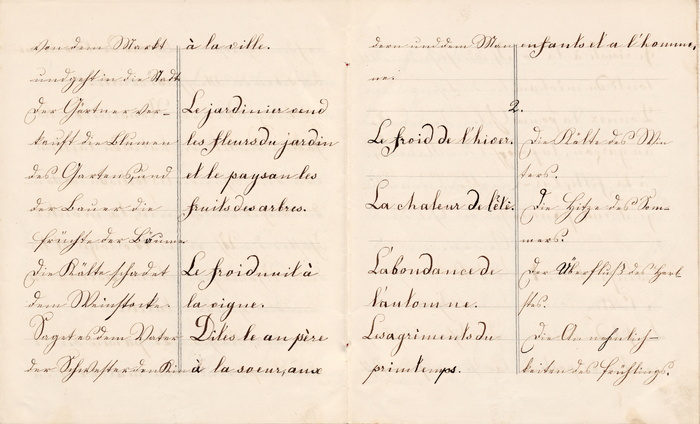 von dem Markt à la ville.
und geht in die Stadt
Der Gärtner ver- Le jardinier vend
kauft die Blumen les fleurs du jardin
des Gartens, und et le paysan les
der Bauer die fruits des arbres.
Früchte der Bäume
Die Kälte schadet Le froid nuit à
dem Weinstocke. la vigne.
Saget es dem Vater Dites le au père
der Schwester den Kin à la soeur, aux
dern und dem Man enfants et a l'homme,
ne
2.
Le froid de l'hiver. Die Kälte des Win
ters.
La chaleur de l'été. Die Hitze des Som-
mers.
L'abondance de Der Überfluß des Herb
l'automne. stes.
Les agriments du Die Annehmlich-
printemps. keiten des Frühlings.